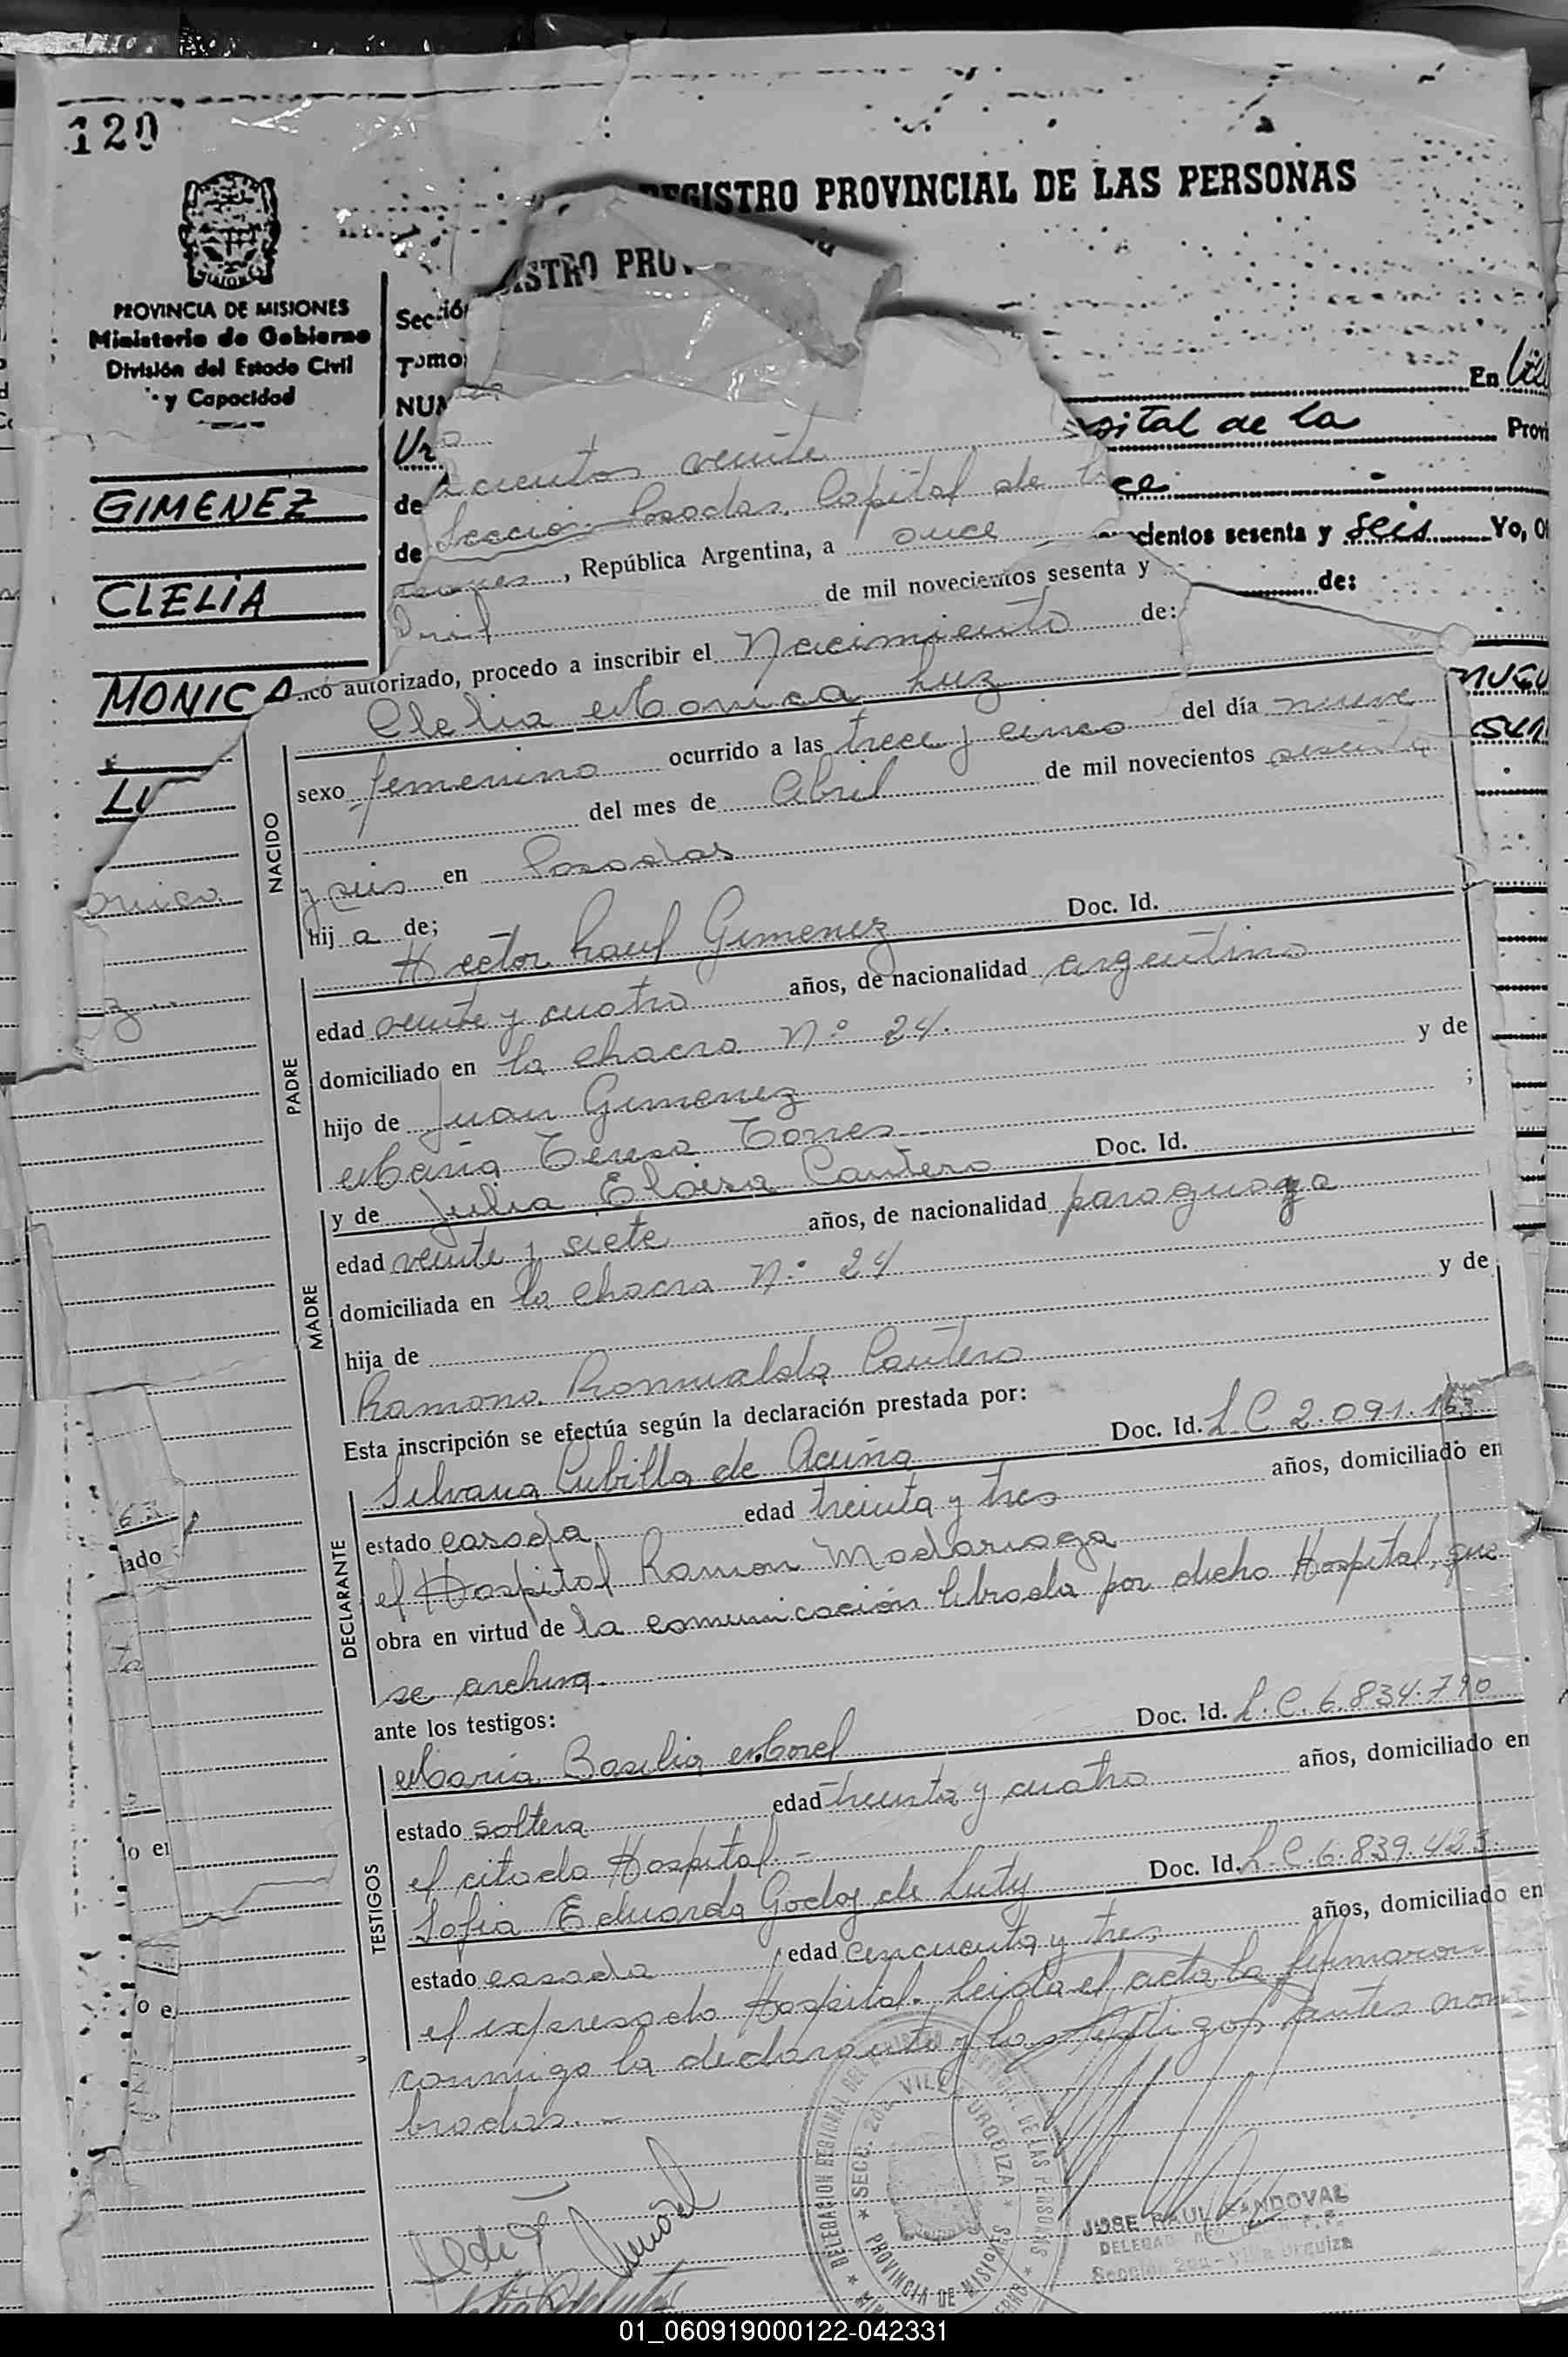 120
REGISTRO PROVINCIAL DE LAS PERSONAS
ISTRO PROV
PROVINCIA DE MISIONES
Ministerio de Gobierno
División del Estado Civil
y Capacidad
GIMENEZ
CLELIA
MONICA
LU
Secció
Tomo
NUM
En
pital de la
Provi
cientos veinte
de
Sección Posadas, Capital de la
de
ones, República Argentina, a once
cientos sesenta y seis Yo, O
bril de mil novecientos sesenta y
de:
ico autorizado, procedo a inscribir el Nacimiento de:
NACIDO
Clelia Monica Luz
sexo femenino ocurrido a las trece y cinco del día nueve
del mes de Abril de mil novecientos sesenta
y seis en Posadas
hij a de;
PADRE
Hector Raul Gimenez Doc. Id.
edad veinte y cuatro años, de nacionalidad argentino
domiciliado en la chacra Nº 24.
hijo de Juan Gimenez y de
Maria Teresa Torres ;
MADRE
y de Julia Eloisa Cantero Doc. Id.
edad veinte y siete años, de nacionalidad paraguaya
domiciliada en la chacra Nº 24
hija de y de
Ramona Romualda Cantero
Esta inscripción se efectúa según la declaración prestada por:
DECLARANTE
Silvana Cubilla de Acuña Doc. Id. L C 2.091.163
estado casada edad treinta y tres años, domiciliado en
el Hospital Ramon Madariaga
obra en virtud de la comunicación librada por dicho Hospital, que
se archiva.
ante los testigos:
TESTIGOS
Maria Basilia Morel Doc. Id. L.C. 6.834.790
estado soltera edad treinta y cuatro años, domiciliado en
el citado Hospital.-
Sofia Eduarda Godoy de Luty Doc. Id. L.C. 6.839.423.
estado casada edad cincuenta y tres años, domiciliado en
el expresado Hospital. Leida el acta la firmaron
conmigo la declarante y los testigos antes nom
brados.-
DELEGACION REGIONAL DEL REGISTRO PROVINCIAL DE LAS PERSONAS
SECC. 2da VILLA URQUIZA
PROVINCIA DE MISIONES
JOSE RAUL SANDOVAL
Sección 2da - Villa Urquiza
01_060919000122-042331